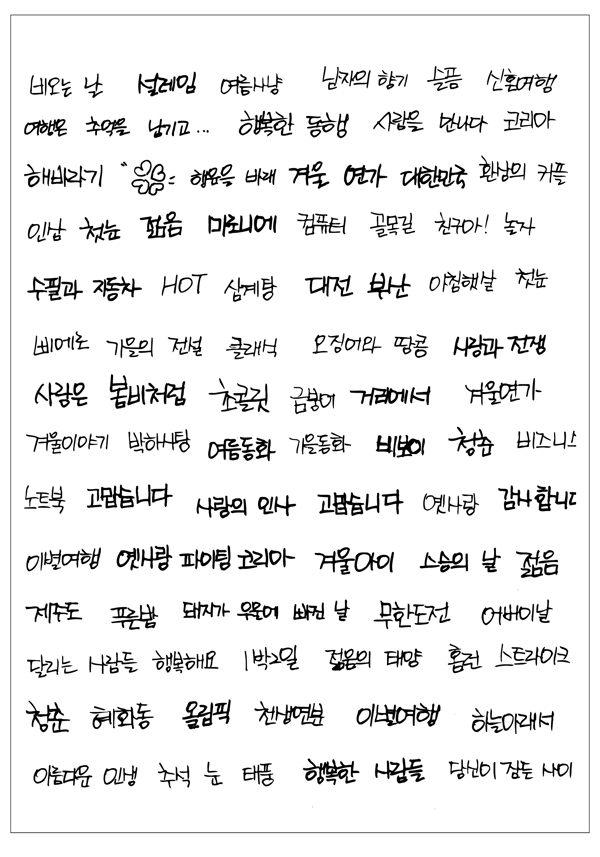 비오는 날 설레임 여름사냥 남자의 향기 슬픔 신혼여행
여행은 추억을 남기고... 행복한 동행 사람을 만나다 코리아
해바라기 행운을 바래 겨울 연가 대한민국 환상의 커플
인삼 첫눈 젊음 마로니에 컴퓨터 골목길 친구야! 놀자
수필과 자동차 HOT 삼계탕 대전 부난 아침햇살 첫눈
삐에로 가을의 전설 클래식 오징어와 땅콩 사랑과 전쟁
사랑은 봄비처럼 초콜릿 금붕어 거리에서 겨울연가
겨울이야기 박하사탕 여름동화 가을동화 비보이 청춘 비즈니스
노트북 고맙습니다 사랑의 인사 고맙습니다 옛사랑 감사합니다
이별여행 옛사랑 파이팅 코리아 겨울아이 스승의 날 젊음
제주도 푸른밤 돼지가 우물에 빠진 날 무한도전 어버이날
달리는 사람들 행복해요 1박2일 젊음의 태양 홈런 스트라이크
청춘 혜화동 올림픽 천생연분 이별여행 하늘아래서
아름다운 인생 추석 눈 태풍 행복한 사람들 당신이 잠든 사이